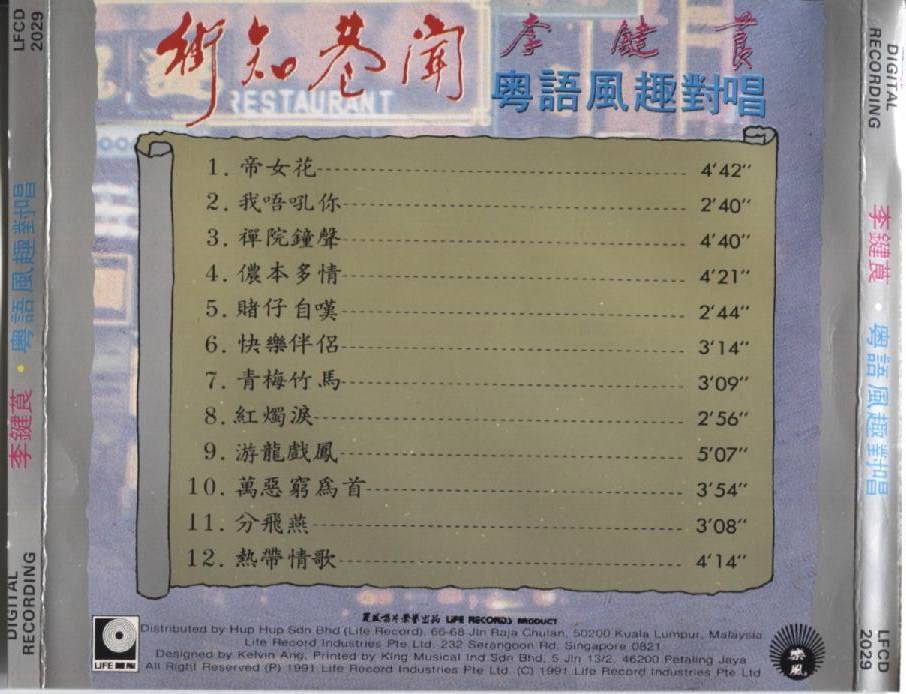 街知巷聞
李鍵莨
粵語風趣對唱
RESTAURANT
1. 帝女花 4'42"
2. 我唔吼你 2'40"
3. 禪院鐘聲 4'40"
4. 儂本多情 4'21"
5. 賭仔自嘆 2'44"
6. 快樂伴侶 3'14"
7. 青梅竹馬 3'09"
8. 紅燭淚 2'56"
9. 游龍戲鳳 5'07"
10. 萬惡窮為首 3'54"
11. 分飛燕 3'08"
12. 熱帶情歌 4'14"
麗風唱片榮譽出品 LIFE RECORDS PRODUCT
Distributed by Hup Hup Sdn Bhd (Life Record), 66-68 Jln Raja Chulan, 50200 Kuala Lumpur, Malaysia
Life Record Industries Pte Ltd. 232 Serangoon Rd. Singapore 0821
Designed by Kelvin Ang, Printed by King Musical Ind Sdn Bhd, 5 Jln 13/2, 46200 Petaling Jaya
All Right Reserved (P) 1991 Life Record Industries Pte Ltd. (C) 1991 Life Record Industries Pte Ltd
LIFE 麗風
樂風
LFCD 2029
粵語風趣對唱 • 李鍵莨
DIGITAL RECORDING
DIGITAL RECORDING
李鍵莨 • 粵語風趣對唱
LFCD 2029